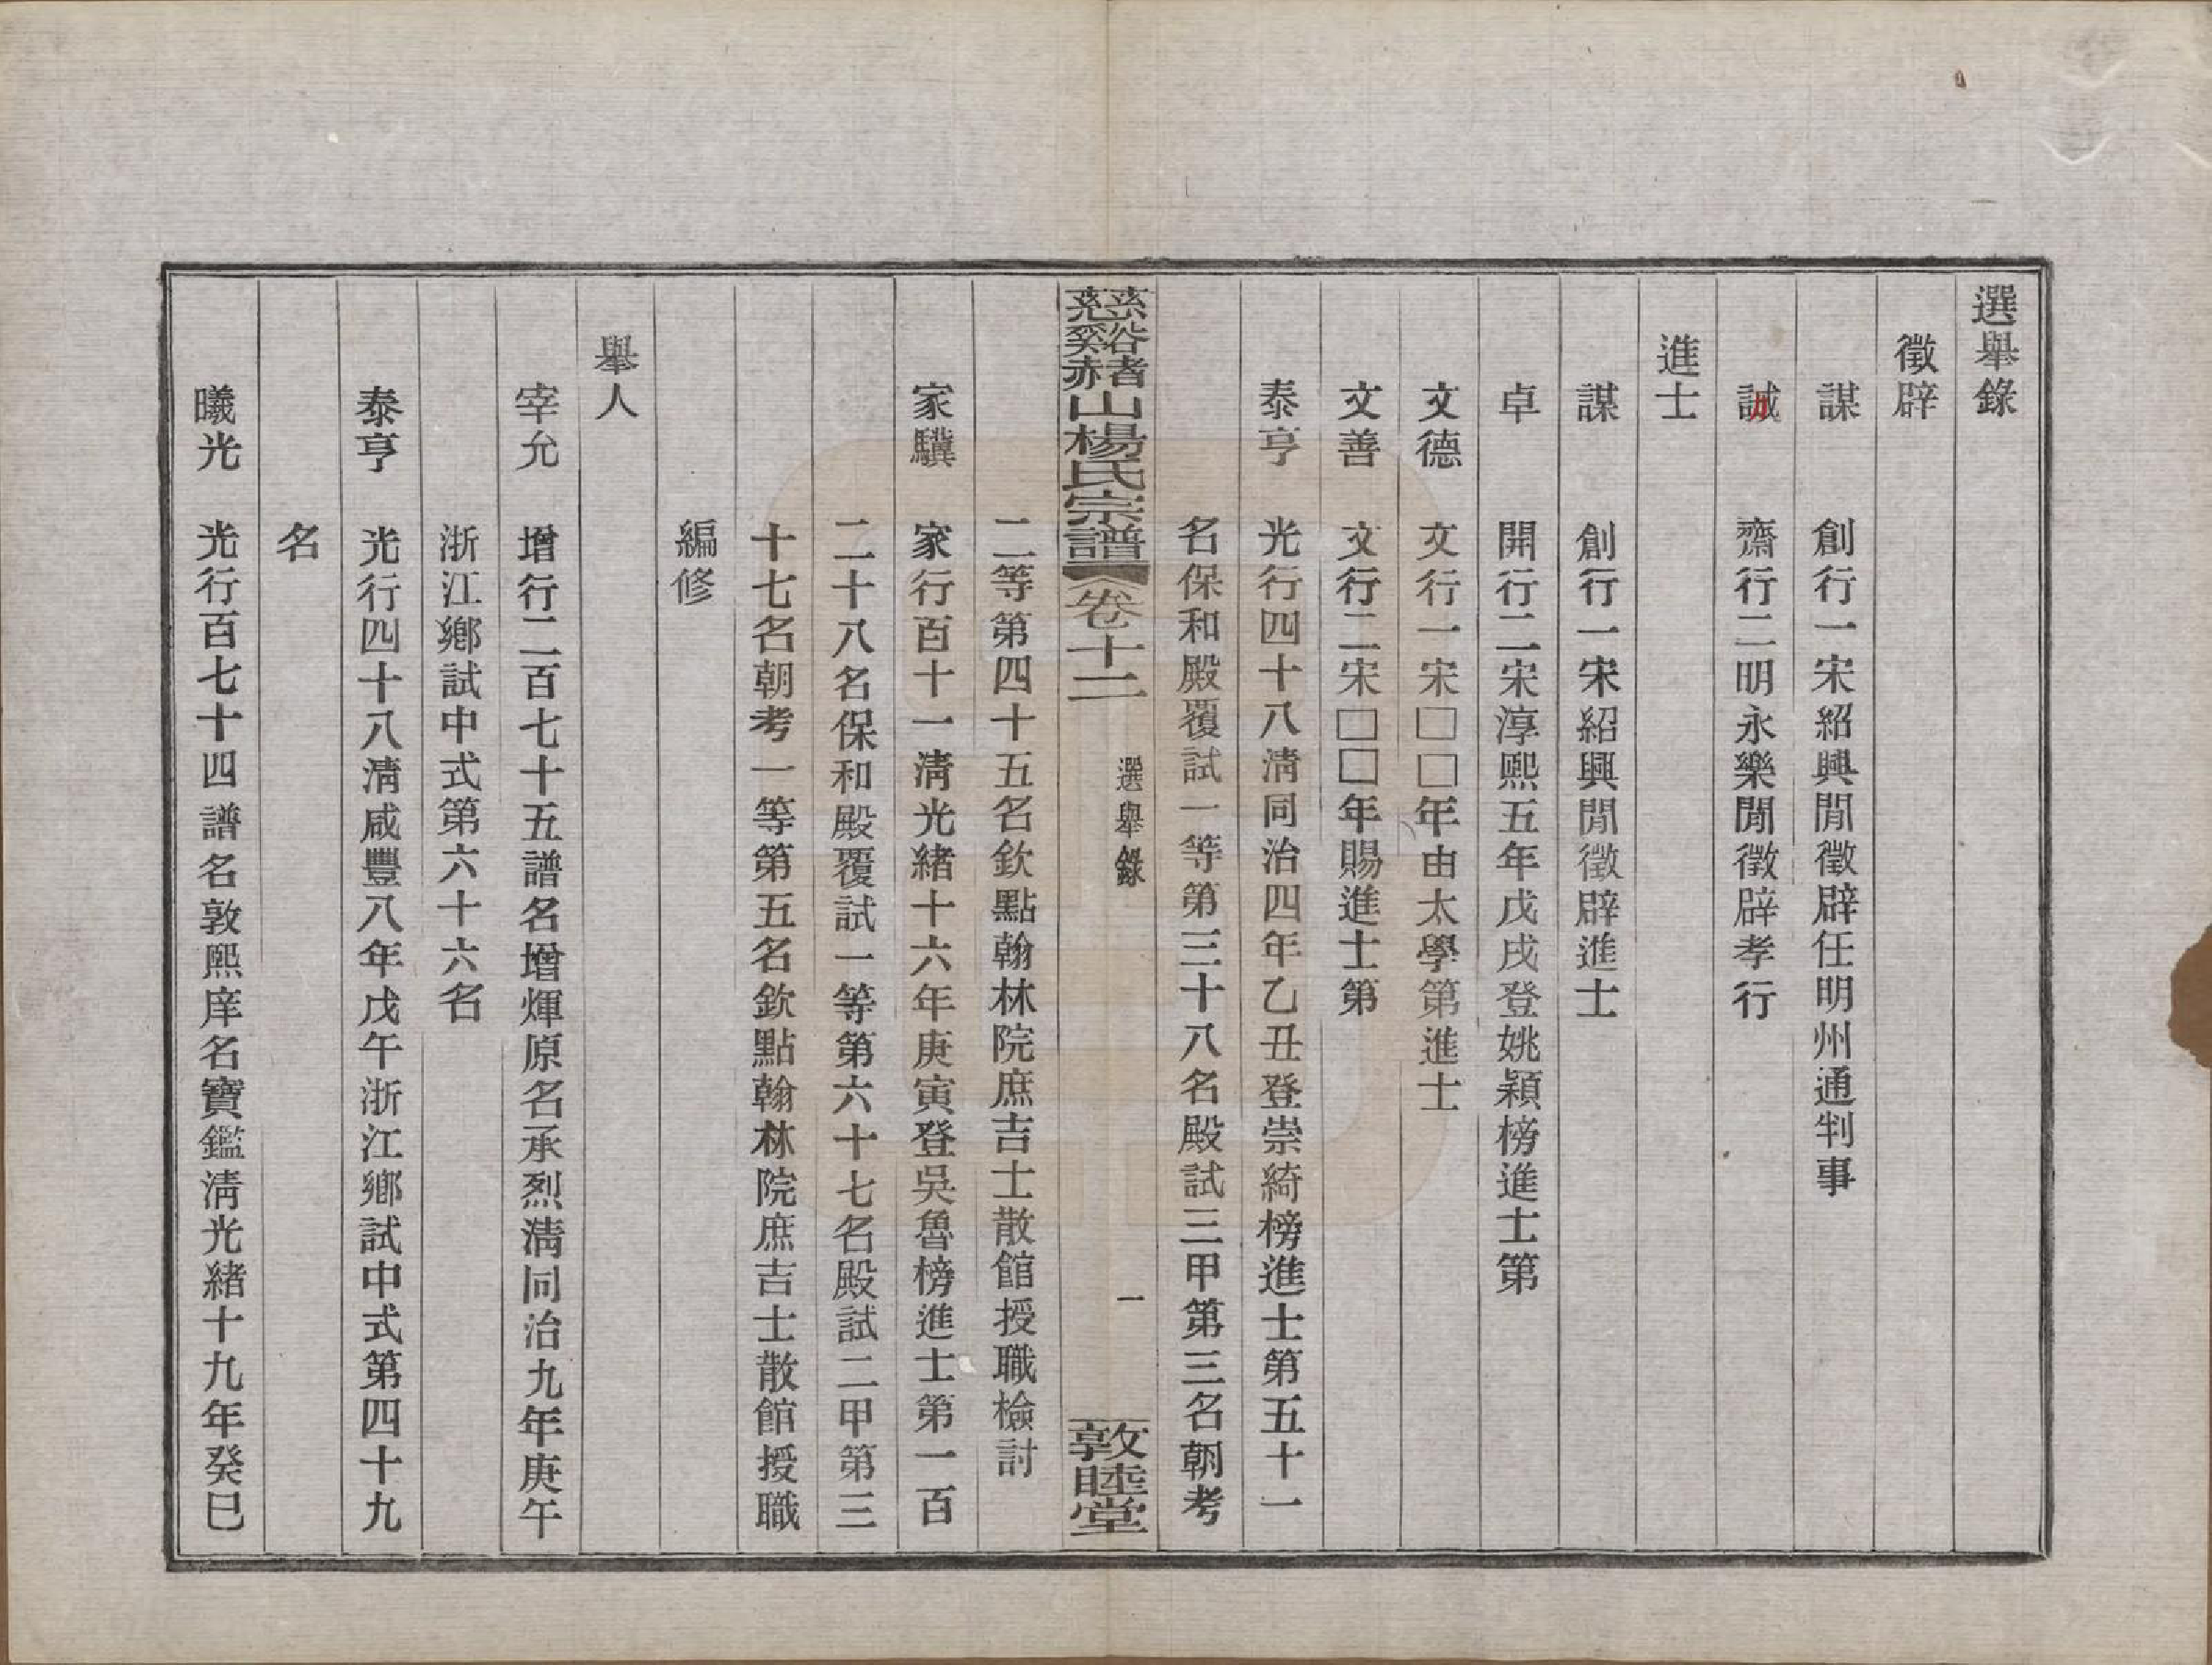 選舉錄
徵辟
謀　創行一宋紹興閒徵辟任明州通判事
誠　齋行二明永樂閒徵辟孝行
進士
謀　創行一宋紹興閒徵辟進士
卓　開行二宋淳熙五年戊戌登姚穎榜進士第
文德　文行一宋□□年由太學第進士
文善　文行二宋□□年賜進士第
泰亨　光行四十八淸同治四年乙丑登崇綺榜進士第五十一
名保和殿覆試一等第三十八名殿試三甲第三名朝考
慈谿赭山楊氏宗譜　卷十二　選舉錄　一　敦睦堂
二等第四十五名欽點翰林院庶吉士散館授職檢討
家驥　家行百十一淸光緖十六年庚寅登吳魯榜進士第一百
二十八名保和殿覆試一等第六十七名殿試二甲第三
十七名朝考一等第五名欽點翰林院庶吉士散館授職
編修
舉人
宰允　增行二百七十五譜名增煇原名承烈淸同治九年庚午
浙江鄕試中式第六十六名
泰亨　光行四十八淸咸豐八年戊午浙江鄕試中式第四十九
名
曦光　光行百七十四譜名敦熙庠名寶鑑淸光緖十九年癸巳